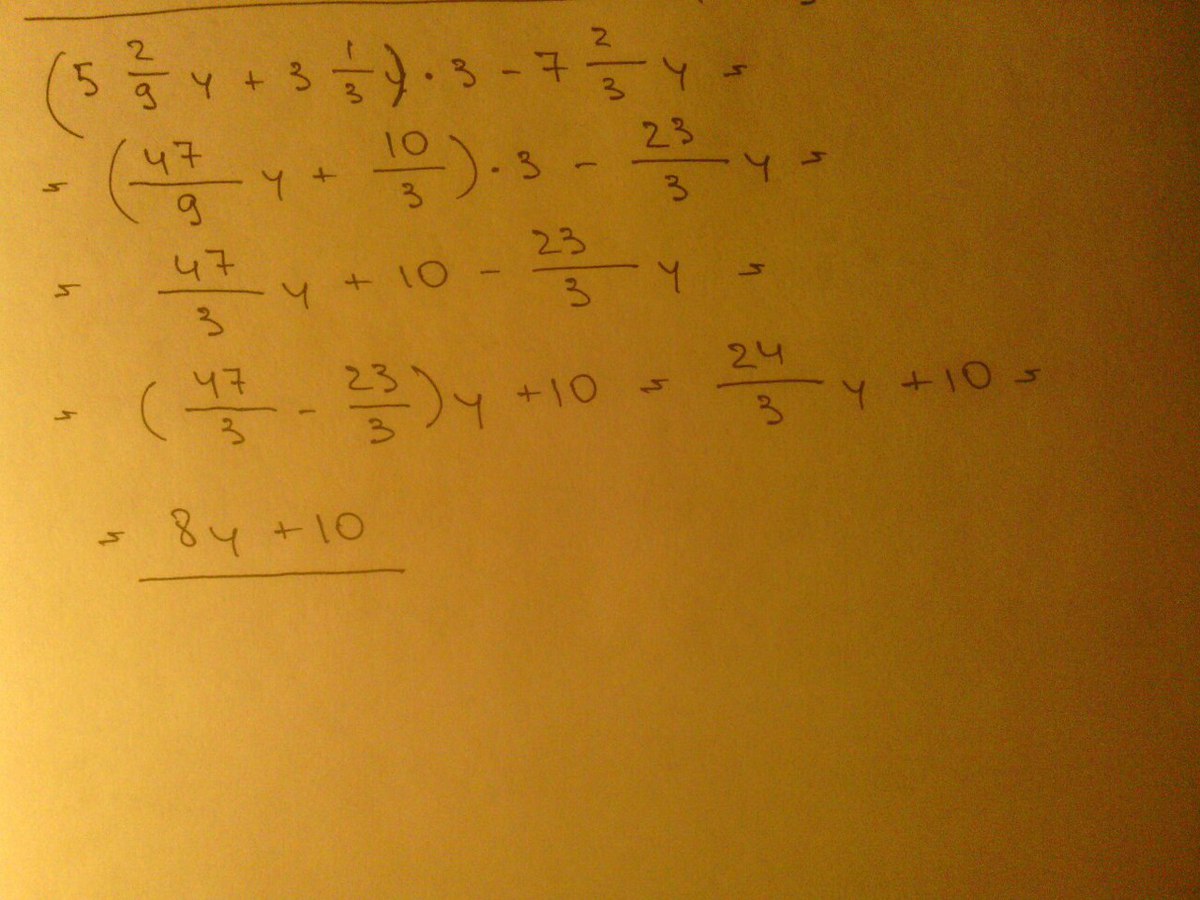 (5 2/9 y + 3 1/3) · 3 - 7 2/3 y =
= (47/9 y + 10/3) · 3 - 23/3 y =
= 47/3 y + 10 - 23/3 y =
= (47/3 - 23/3) y + 10 = 24/3 y + 10 =
= 8y + 10